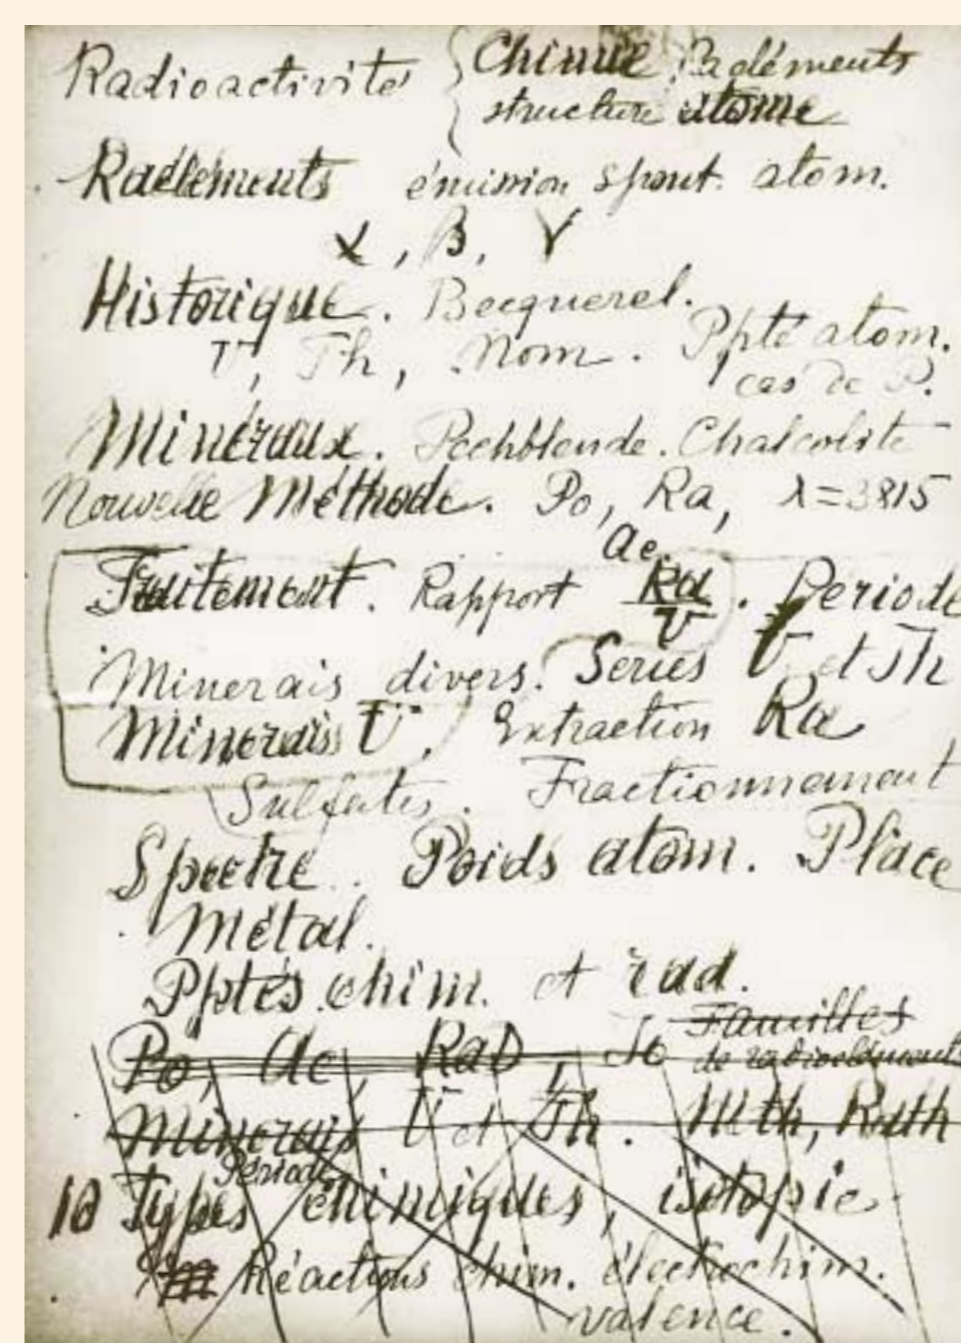 Radioactivité { Chimie Radéléments
structure atome
Radéléments émission spont. atom.
α, β, γ
Historique. Becquerel.
U, Th, Nom. Ppté atom.
cas de P.
Minéraux. Pechblende. Chalcolite
Nouvelle Méthode. Po, Ra, λ=3815
Ac.
Traitement. Rapport Ra/U. Periode
Minerais divers. Series U et Th
Minerais U. Extraction Ra
Sulfates. Fractionnement
Spectre. Poids atom. Place
Métal.
Pptés chim. et rad.
Po, Ac, RaD, Io Familles
de radioéléments
Minerais U et Th. MTh, RaTh
Periode
10 Types chimiques, isotopie
Réactions chim. électrochim.
valence.